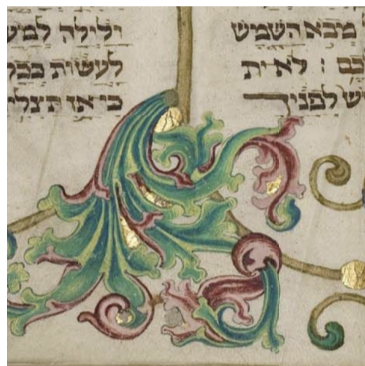 מבא השמש
לא ית
לפניך
ולילה
לעשות ככל
כי אז תצלי